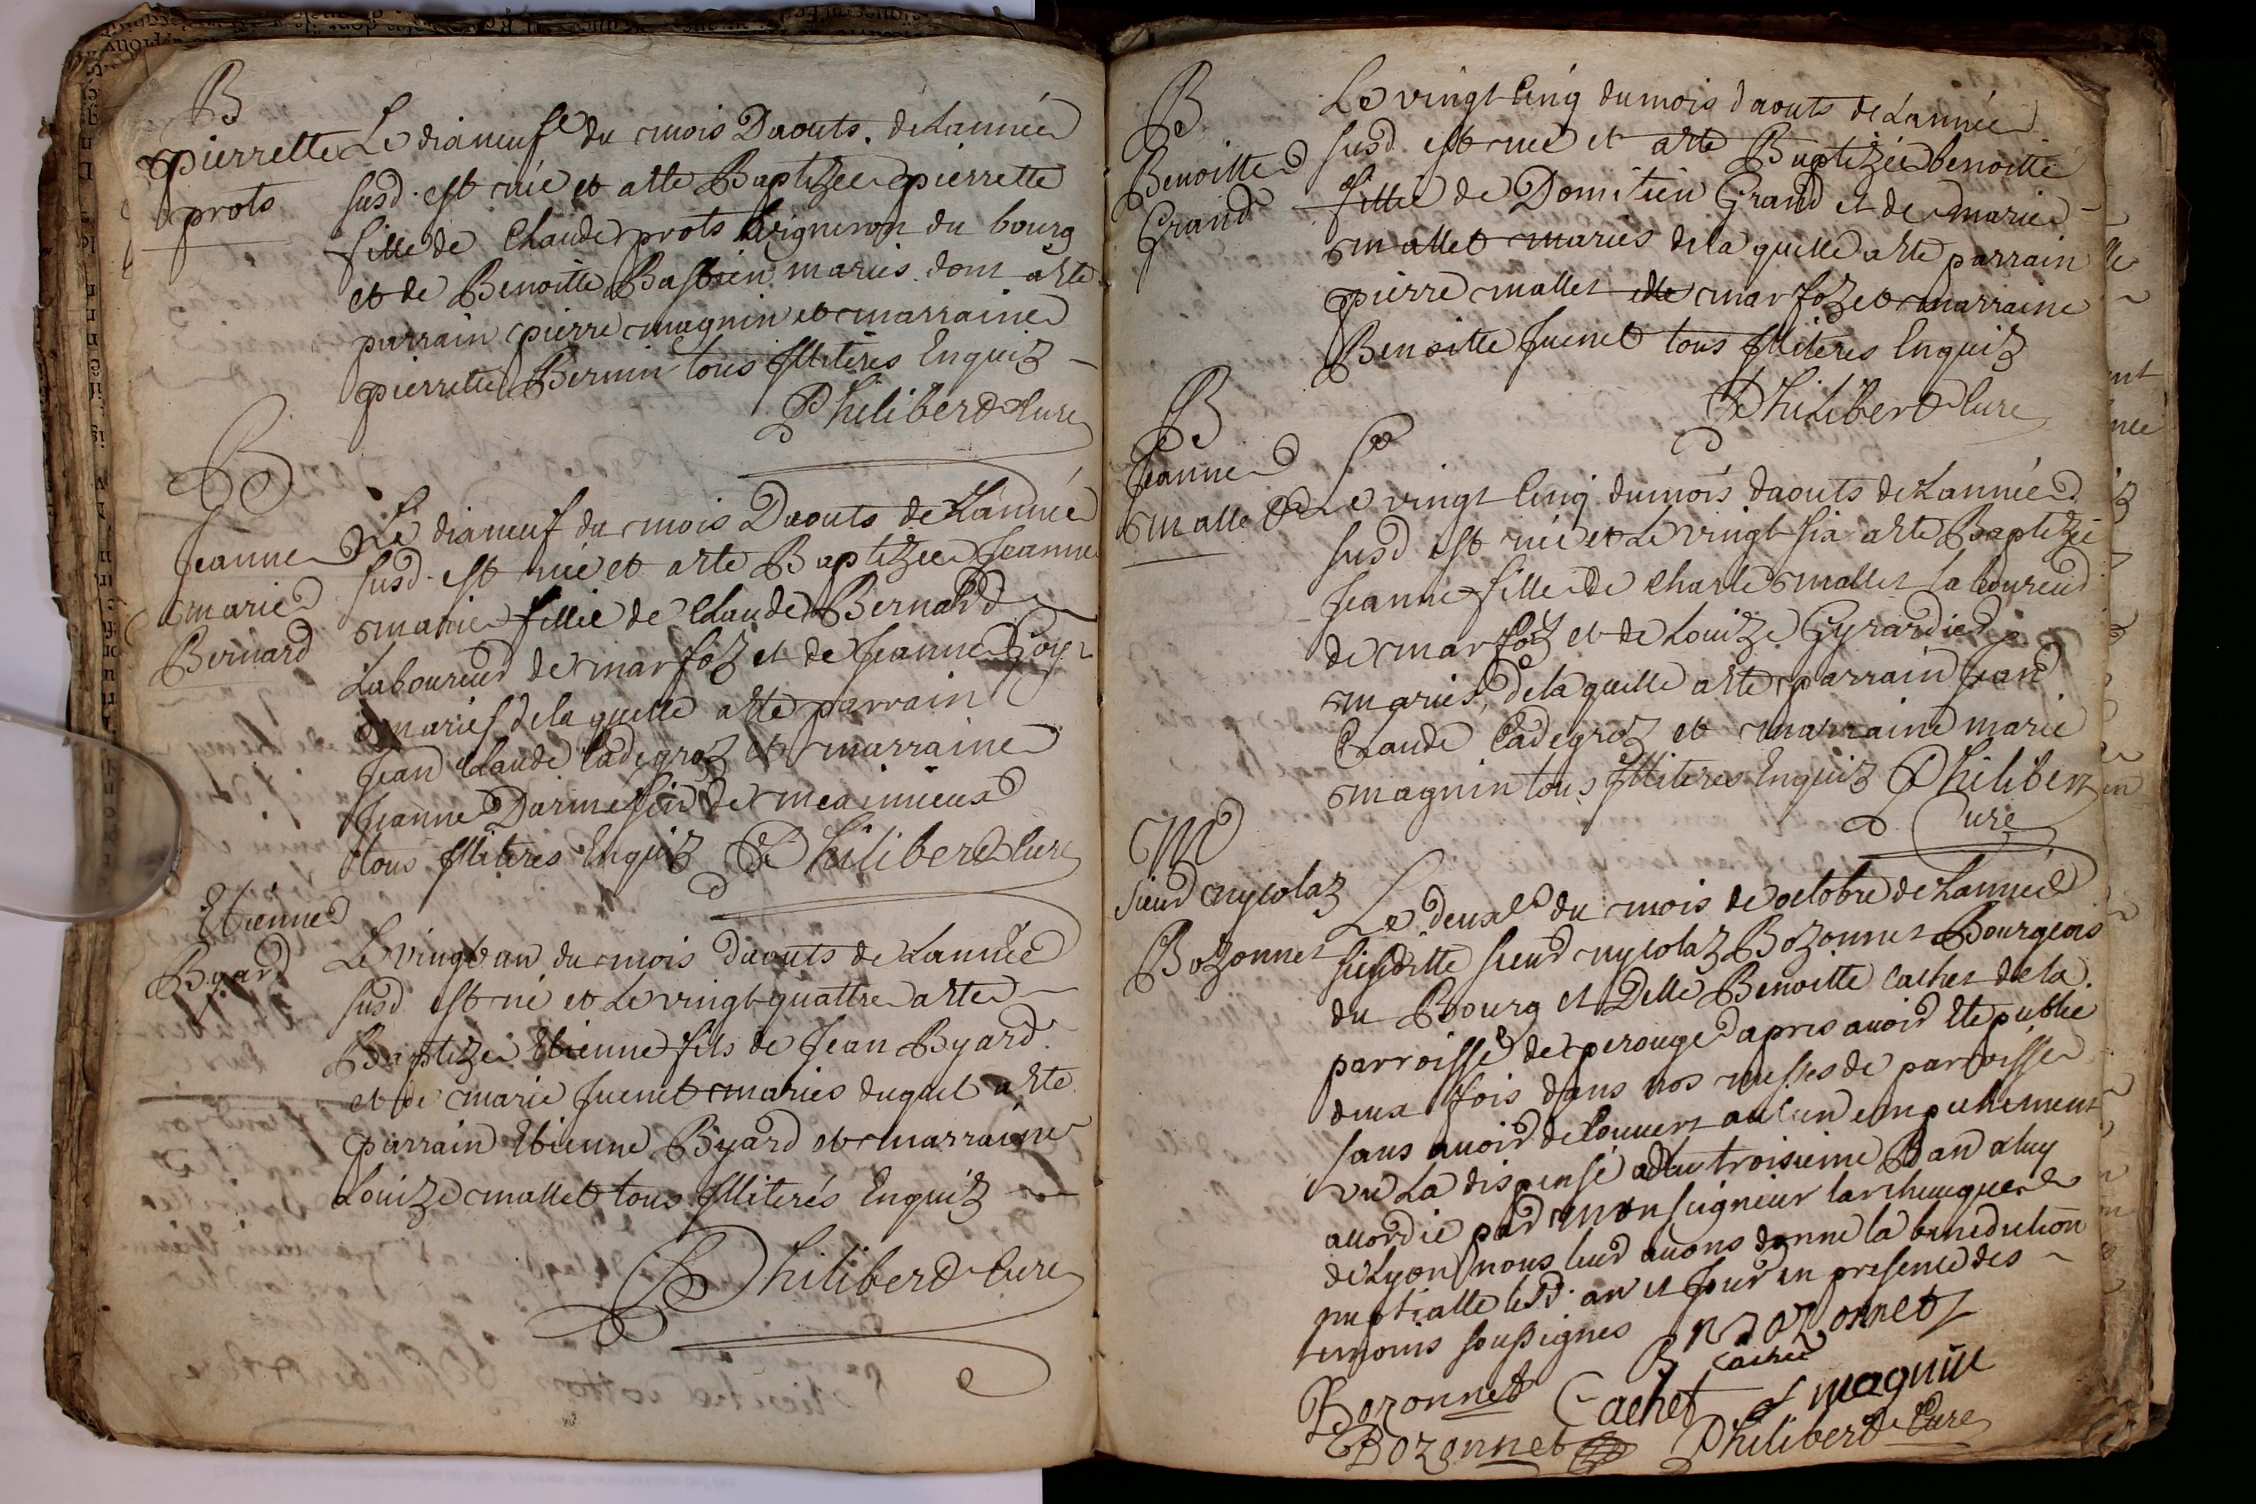 B
pierrette
prots
Le dixneufe du mois Daouts de Lannée
susd. est née et atte Baptizée pierrette
fille de Claude prots vigneron du bourg
et de Benoitte Bastien mariés dont atte
parrain pierre magnin et marraine
pierrette Bernin tous illiteres Enquiz
Philiberd Cure
B
Jeanne
marie
Bernard
Le dixneuf du mois Daouts de Lannée
susd. est née et atte Baptizée Jeanne
marie fillie de Claude Bernard
Laboureur de marfoz et de Jeanne
mariés de la quelle atte parrain
Jean Claude Cadegroz et marraine
Jeanne Darmesin de meximieux
tous illiteres Enquiz Philiberd Cure
Etienne
Byard
Le vingt un du mois daouts de Lannée
susd est né et Le vingt quattre atte
Baptizé Etienne fils de Jean Byard
et de marie Juenet mariés duquel atte
parrain Etienne Byard et marraine
Louize mallet tous illiterés Enquiz
Philiberd Cure
B
Benoitte
Grand
Le vingt Cinq du mois daouts de Lannée
susd est née et atte Baptizée benoitte
fillie de Domitien Grand et de marie
mallet mariés de la quelle atte parrain
pierre mallet de marfoz et marraine
Benoitte Juenet tous illiteres Enquiz
Philiberd Cure
B
Jeanne
mallet
Le vingt Cinq du mois daouts de Lannée
susd est née et Le vingt six atte Baptizée
Jeanne fille de Charle mallet laboureur
de marfoz et de Louize Gyrardier
mariés, de la quelle atte parrain Jean
Claude Cadegroz et marraine marie
magnin tous illiteres Enquiz Philibert
Cure
M
sieur nycolaz
Bozonnet
Le deuxe du mois de octobre de Lannée
susditte sieur nycolaz Bozonnet Bourgeois
du Bourg et Delle Benoitte Cachet de la
parroisse de perouge dapres avoir Ete publie
deux fois dans nos messes de parroisse
sans avoir decouvert aucun empechement
vu La dispense du troisieme Ban a luy
accordie par monseigneur larcheveque
de Lyon nous leur avons donne la benediction
nuptialle led. an et Jour en presence des
temoins soussignes
Bozonnet
B Cachet
Bozonnet Cachet magnin
Bozonnet Philiberd Cure